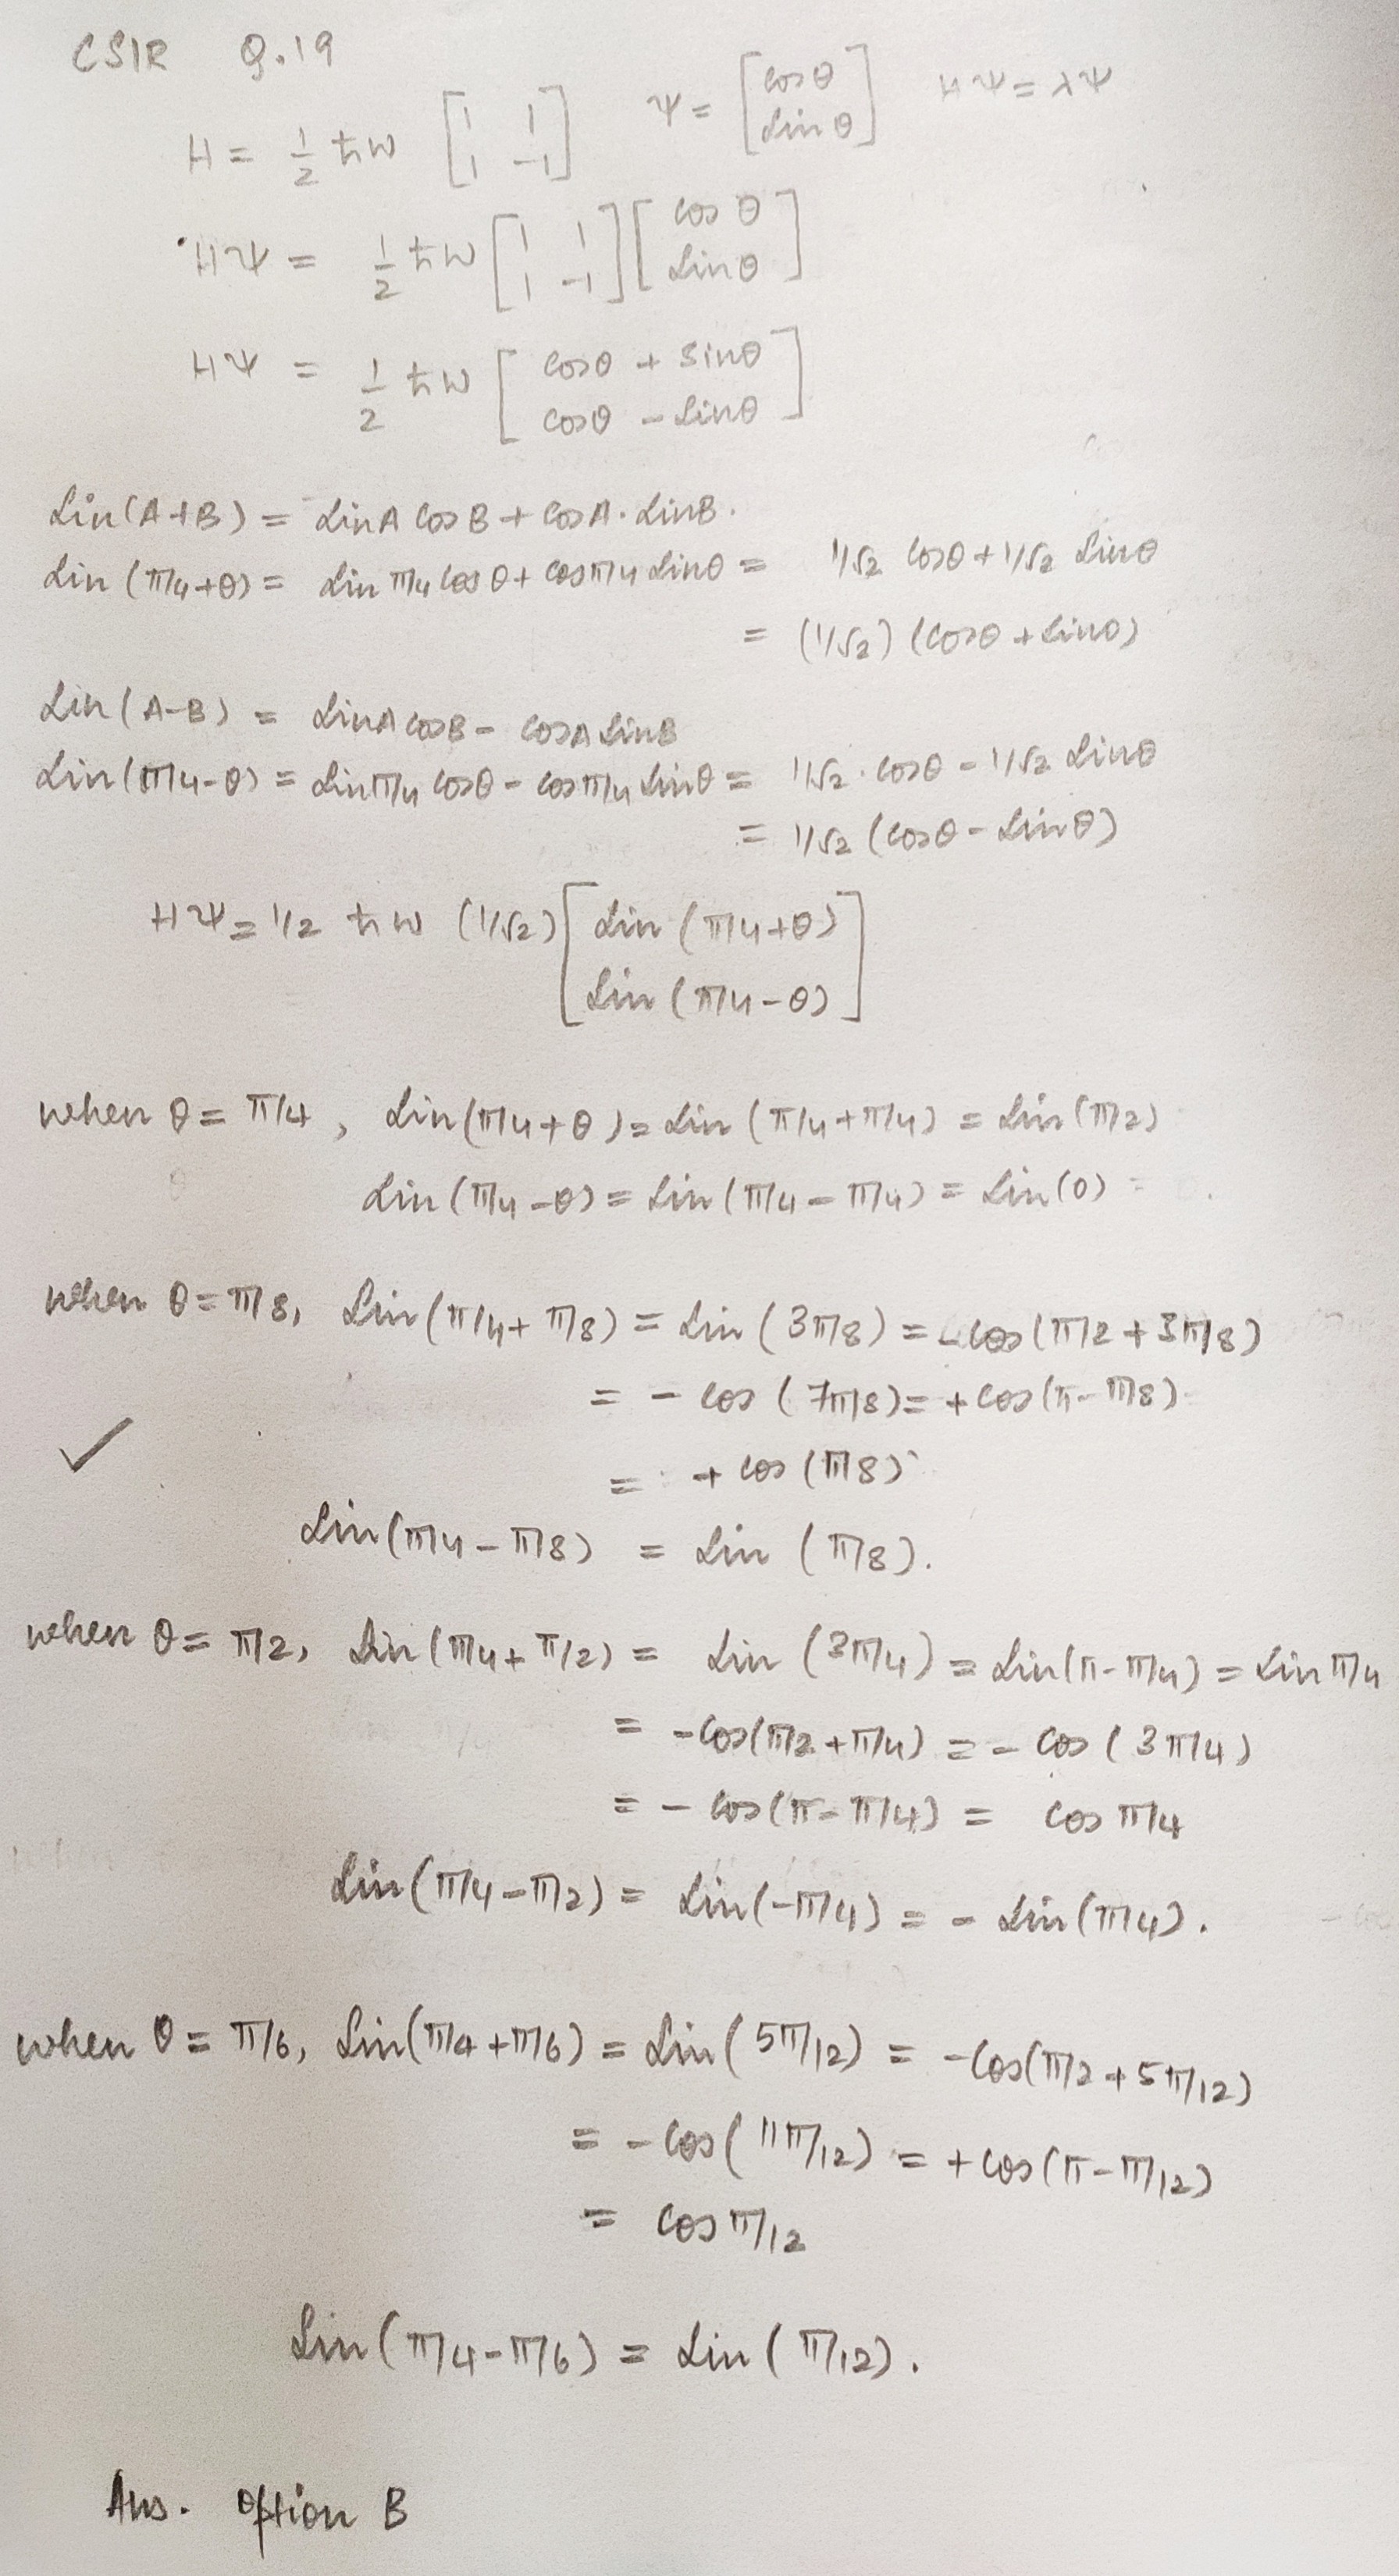 CSIR Q.19
H = 1/2 ħw [1 1; 1 -1] Ψ = [cosθ; sinθ] HΨ = λΨ
HΨ = 1/2 ħw [1 1; 1 -1] [cosθ; sinθ]
HΨ = 1/2 ħw [cosθ + sinθ; cosθ - sinθ]
sin(A+B) = sinA cosB + cosA. sinB.
sin(π/4+θ) = sin π/4 cosθ + cosπ/4 sinθ = 1/√2 cosθ + 1/√2 sinθ
= (1/√2) (cosθ + sinθ)
sin(A-B) = sinA cosB - cosA sinB
sin(π/4-θ) = sinπ/4 cosθ - cosπ/4 sinθ = 1/√2 . cosθ - 1/√2 sinθ
= 1/√2 (cosθ - sinθ)
HΨ = 1/2 ħw (1/√2) [sin(π/4+θ); sin(π/4-θ)]
when θ = π/4, sin(π/4+θ) = sin(π/4+π/4) = sin(π/2)
sin(π/4-θ) = sin(π/4-π/4) = sin(0) =
when θ = π/8, sin(π/4+π/8) = sin(3π/8) = -cos(π/2+3π/8)
= - cos(7π/8) = + cos(π-π/8)
✓
= + cos(π/8)
sin(π/4-π/8) = sin(π/8).
when θ = π/2, sin(π/4+π/2) = sin(3π/4) = sin(π-π/4) = sin π/4
= -cos(π/2+π/4) = - cos(3π/4)
= - cos(π-π/4) = cos π/4
sin(π/4-π/2) = sin(-π/4) = - sin(π/4).
when θ = π/6, sin(π/4+π/6) = sin(5π/12) = -cos(π/2+5π/12)
= - cos(11π/12) = + cos(π-π/12)
= cos π/12
sin(π/4-π/6) = sin(π/12).
Ans. option B